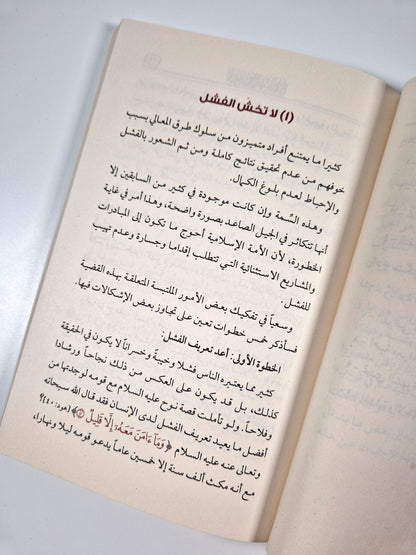 (١) لا تخشَ الفشل
كثيرا ما يمتنع أفراد متميزون من سلوك طرق المعالي بسبب
خوفهم من عدم تحقيق نتائج كاملة ومن ثم الشعور بالفشل
والإحباط لعدم بلوغ الكمال.
وهذه السِّمة وإن كانت موجودة في كثير من السابقين إلا
أنها تتكاثر في الجيل الصاعد بصورة واضحة، وهذا أمر في غاية
الخطورة، لأن الأمة الإسلامية أحوج ما تكون إلى المبادرات
والمشاريع الاستثنائية التي تتطلب إقداما وجسارة وعدم تهيب
للفشل.
وسعياً في تفكيك بعض الأمور الملتبسة المتعلقة بهذه القضية
فسأذكر خمس خطوات تعين على تجاوز بعض الإشكالات فيها.
الخطوة الأولى: أعد تعريف الفشل:
كثير مما يعتبره الناس فشلا وخيبةً وخسراناً لا يكون في الحقيقة
كذلك، بل قد يكون على العكس من ذلك نجاحاً ورشادا
وفلاحاً. ولو تأملت قصة نوح عليه السلام مع قومه لوجدتها من
أفضل ما يعيد تعريف الفشل لدى الإنسان فقد قال الله سبحانه
وتعالى عنه عليه السلام ﴿وَمَآ ءَامَنَ مَعَهُۥٓ إِلَّا قَلِيلٌ ۝﴾ [هود: ٤٠]؟
مع أنه مكث ألف سنة إلا خمسين عاماً يدعو قومه ليلا ونهارا،